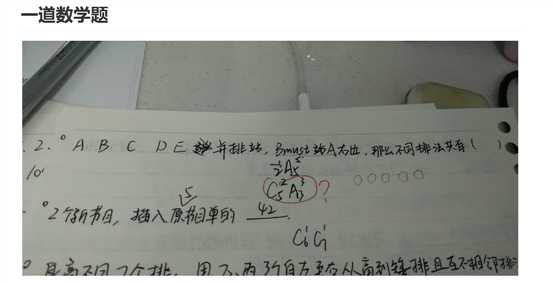 一道数学题
2.° A B C D E 并排站, B must 站A右边, 那么不同排法共有 ( )
10'
½A₅⁵
C₅²A₃³ ?
5
°2个新节目, 插入原节目单的 42
C₆¹C₇¹
°身高不同7个排,
从高到矮排且互不相邻排